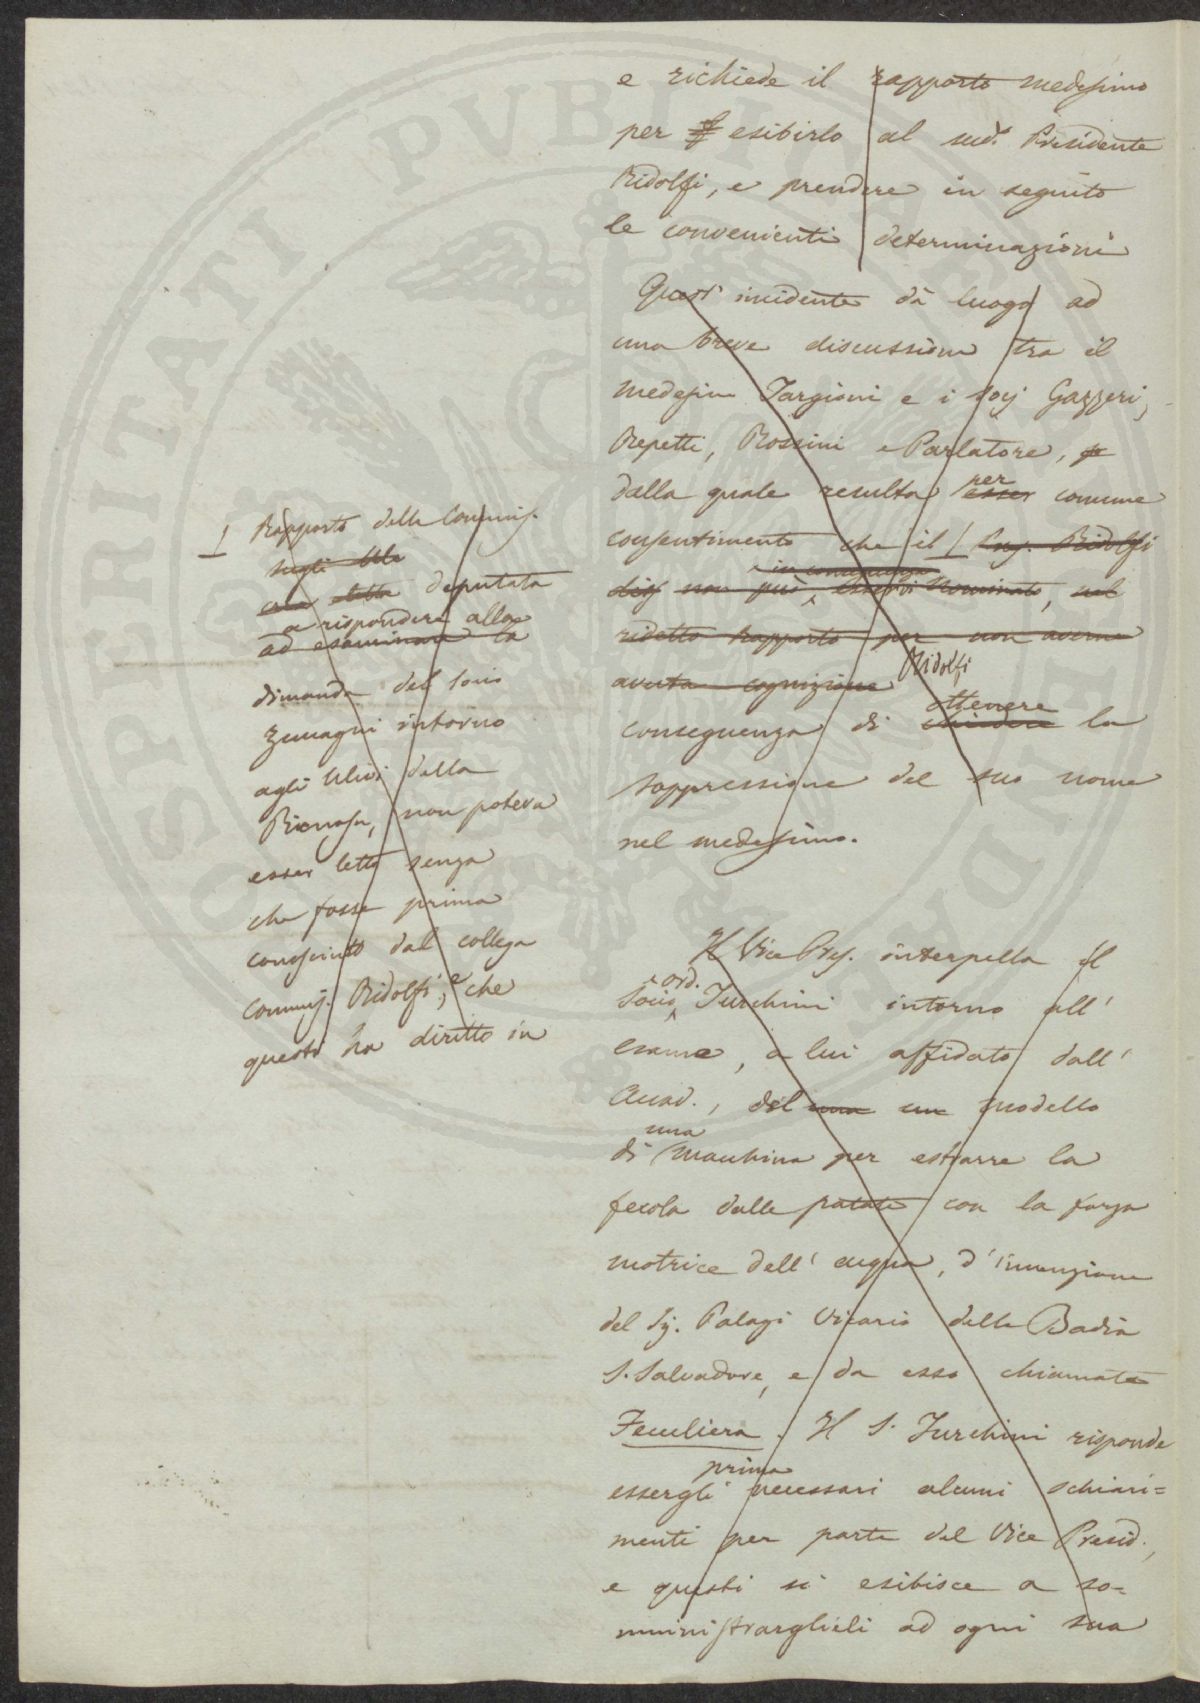 e richiede il rapporto medesimo
per esibirlo al sud.° Presidente
Ridolfi, e prendere in seguito
le convenienti determinazioni
Quest' incidente dà luogo ad
una breve discussione tra il
medesimo Targioni e i socj Gazzeri,
Repetti, Rossini e Parlatore,
dalla quale resulta per comune
esser
consentimento che il / Preg. Ridolfi
in conseguenza
non può esservi nominato, nel
ridetto rapporto per non averne
avuta cognizione Ridolfi
ottenere
conseguenza di chiedere la
soppressione del suo nome
nel medesimo.
/ Rapporto della Commis.
sugli Ulivi
eletta deputata
a rispondere alla
ad esaminare la
dimanda del Socio
Zuccagni intorno
agli Ulivi della
non poteva
esser letto senza
che fosse prima
conosciuto dal collega
Commis. Ridolfi, e che
questi ha diritto in
Il Vice Pres. interpella il
ord.
Socio Turchini intorno all'
esame, a lui affidato dall'
Accad., del una un modello
una
di macchina per estrarre la
fecola dalle patate con la forza
motrice dell' acqua, d'invenzione
del Sig. Palagi Vicario della Badia
S. Salvadore, e da esso chiamata
Feculiera. Il S. Turchini risponde
prima
essergli necessari alcuni schiari=
menti per parte del Vice Presid.,
e questi si esibisce a so=
mministrarglieli ad ogni sua
PROSPERITATI PVBLICAE